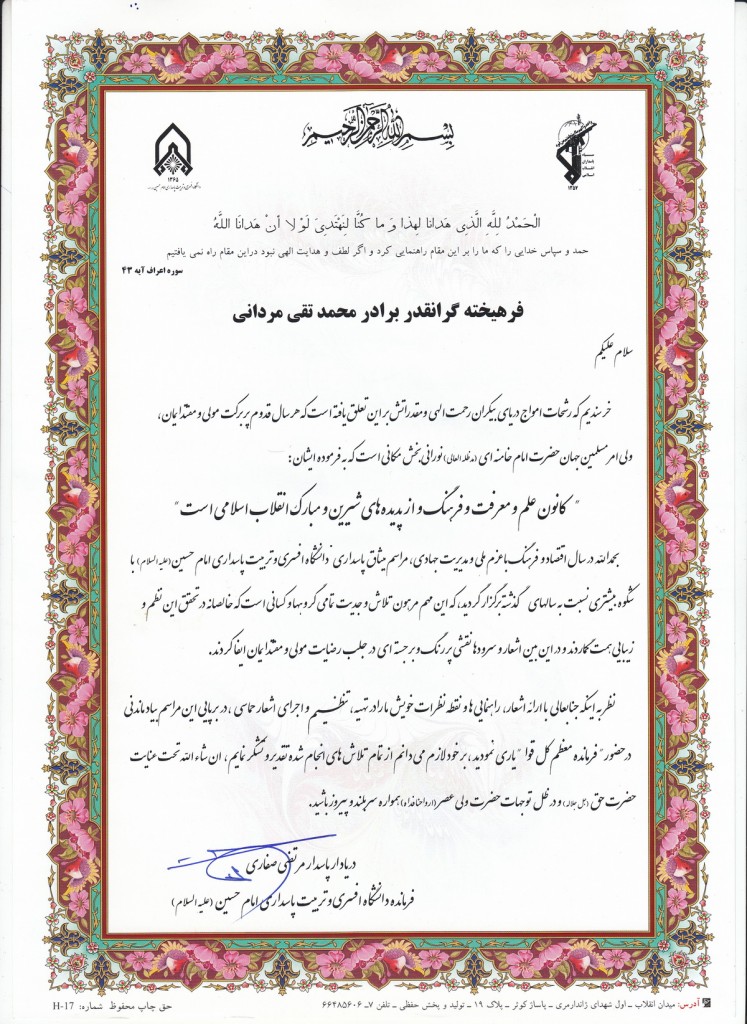 بسم الله الرحمن الرحیم
سپاه
پاسداران
انقلاب
اسلامی
۱۳۵۷
۱۳۶۵
الْحَمْدُ لِلَّهِ الَّذِی هَدَانَا لِهذا وَ ما کُنَّا لِنَهْتَدِیَ لَوْ لا أنْ هَدانَا اللَّهُ
حمد و سپاس خدایی را که ما را بر این مقام راهنمایی کرد و اگر لطف و هدایت الهی نبود دراین مقام راه نمی یافتیم
سوره اعراف آیه ۴۳
فرهیخته گرانقدر برادر محمد تقی مردانی
سلام علیکم
خرسندیم که رشحات امواج دریای بیکران رحمت الهی و مقدراتش بر این تعلق یافته است که هر سال قدوم پر برکت مولی و مقتدایمان،
ولی امر مسلمین جهان حضرت امام خامنه ای (مدظله العالی) نورانی بخش مکانی است که به فرموده ایشان:
" کانون علم و معرفت و فرهنگ و از پدیده های شیرین و مبارک انقلاب اسلامی است "
بحمدالله در سال اقتصاد و فرهنگ با عزم ملی و مدیریت جهادی، مراسم میثاق پاسداری دانشگاه افسری و تربیت پاسداری امام حسین (علیه السلام) با
شکوه بیشتری نسبت به سالهای گذشته برگزار گردید، که این مهم مرهون تلاش و جدیت تمامی گروهها و کسانی است که خالصانه در تحقق این نظم و
زیبایی همت گماردند و در این بین اشعار و سرودها نقشی پر رنگ و برجسته ای در جلب رضایت مولی و مقتدایمان ایفا کردند.
نظر به اینکه جنابعالی با ارائه اشعار، راهنمایی ها و نقطه نظرات خویش ما را در تهیه، تنظیم و اجرای اشعار حماسی، در برپایی این مراسم بیاد ماندنی
در حضور "فرمانده معظم کل قوا" یاری نمودید، بر خود لازم می دانم از تمام تلاش های انجام شده تقدیر و تشکر نمایم، ان شاء الله تحت عنایت
حضرت حق (جل جلاله) و در ظل توجهات حضرت ولی عصر (ارواحنا فداه) همواره سربلند و پیروز باشید.
دریادار پاسدار مرتضی صفاری
فرمانده دانشگاه افسری و تربیت پاسداری امام حسین (علیه السلام)
آدرس: میدان انقلاب ـ اول شهدای ژاندارمری ـ پاساژ کوثر ـ پلاک ۱۹ ـ تولید و پخش حفظی ـ تلفن ۷ـ ۶۶۴۸۵۶۰۶
حق چاپ محفوظ شماره: H-17